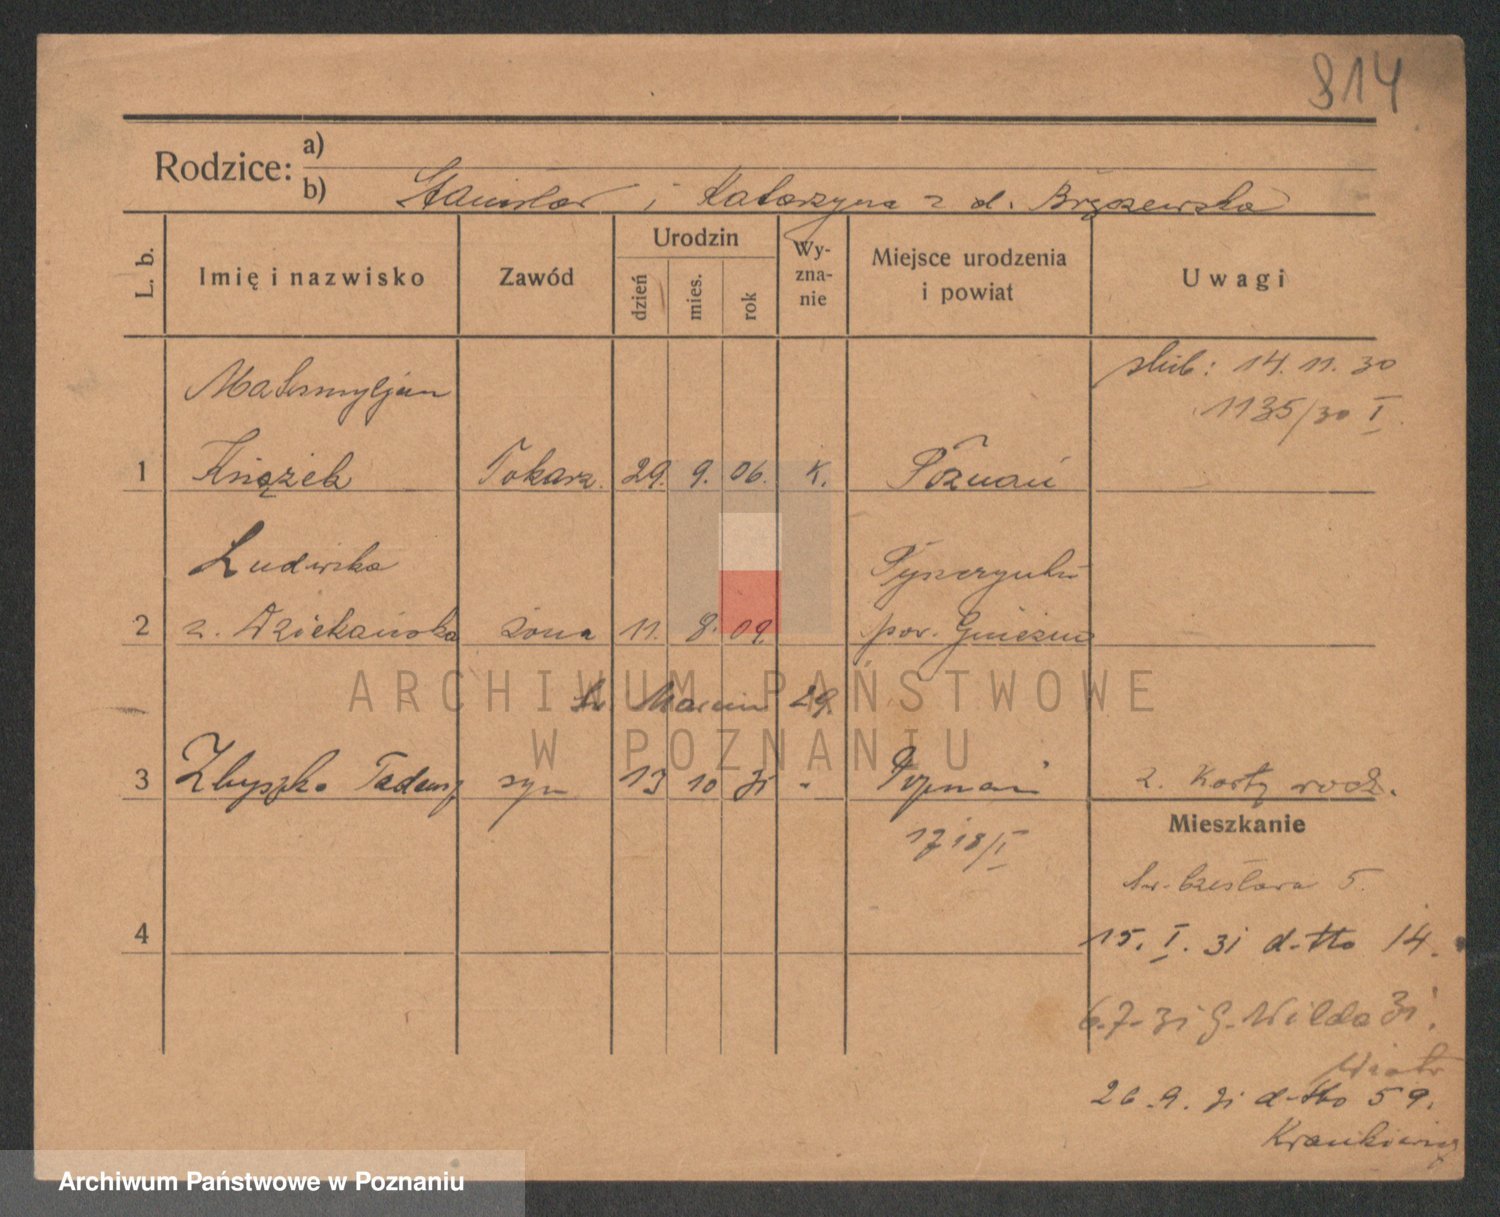 814
Rodzice:
a)
b) Stanisław i Katarzyna z d. Brzozewska
L. b.
Imię i nazwisko
Zawód
Urodzin
dzień
mies.
rok
Wy-
zna-
nie
Miejsce urodzenia
i powiat
Uwagi
ślub: 14. 11. 30
1135/30 I
Maksmyljan
1 Książek Tokarz. 29. 9. 06. K. Poznań
Ludwika
2 z. Dziekańska żona 11. 8. 09. pow. Gniezno
Św Marcin 29.
3 Zbyszko Tadeusz syn 13 10 31 - Poznań z. Karty rodz.
1718/I
Mieszkanie
Św. Czesława 5.
4
15. I. 31 d-tto 14.
6.7.31 G. Wilda 31.
26.9.31 d-tto 59.
ARCHIWUM PAŃSTWOWE
W POZNANIU
Archiwum Państwowe w Poznaniu